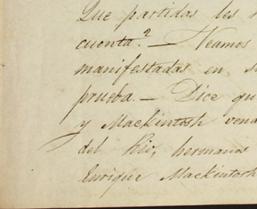 Que partidas les
cuenta? — Veamos
manifestadas en
prueba. — Dice qu
y Mackintosh
del Rio, hermanos
Enrique Mackintosh